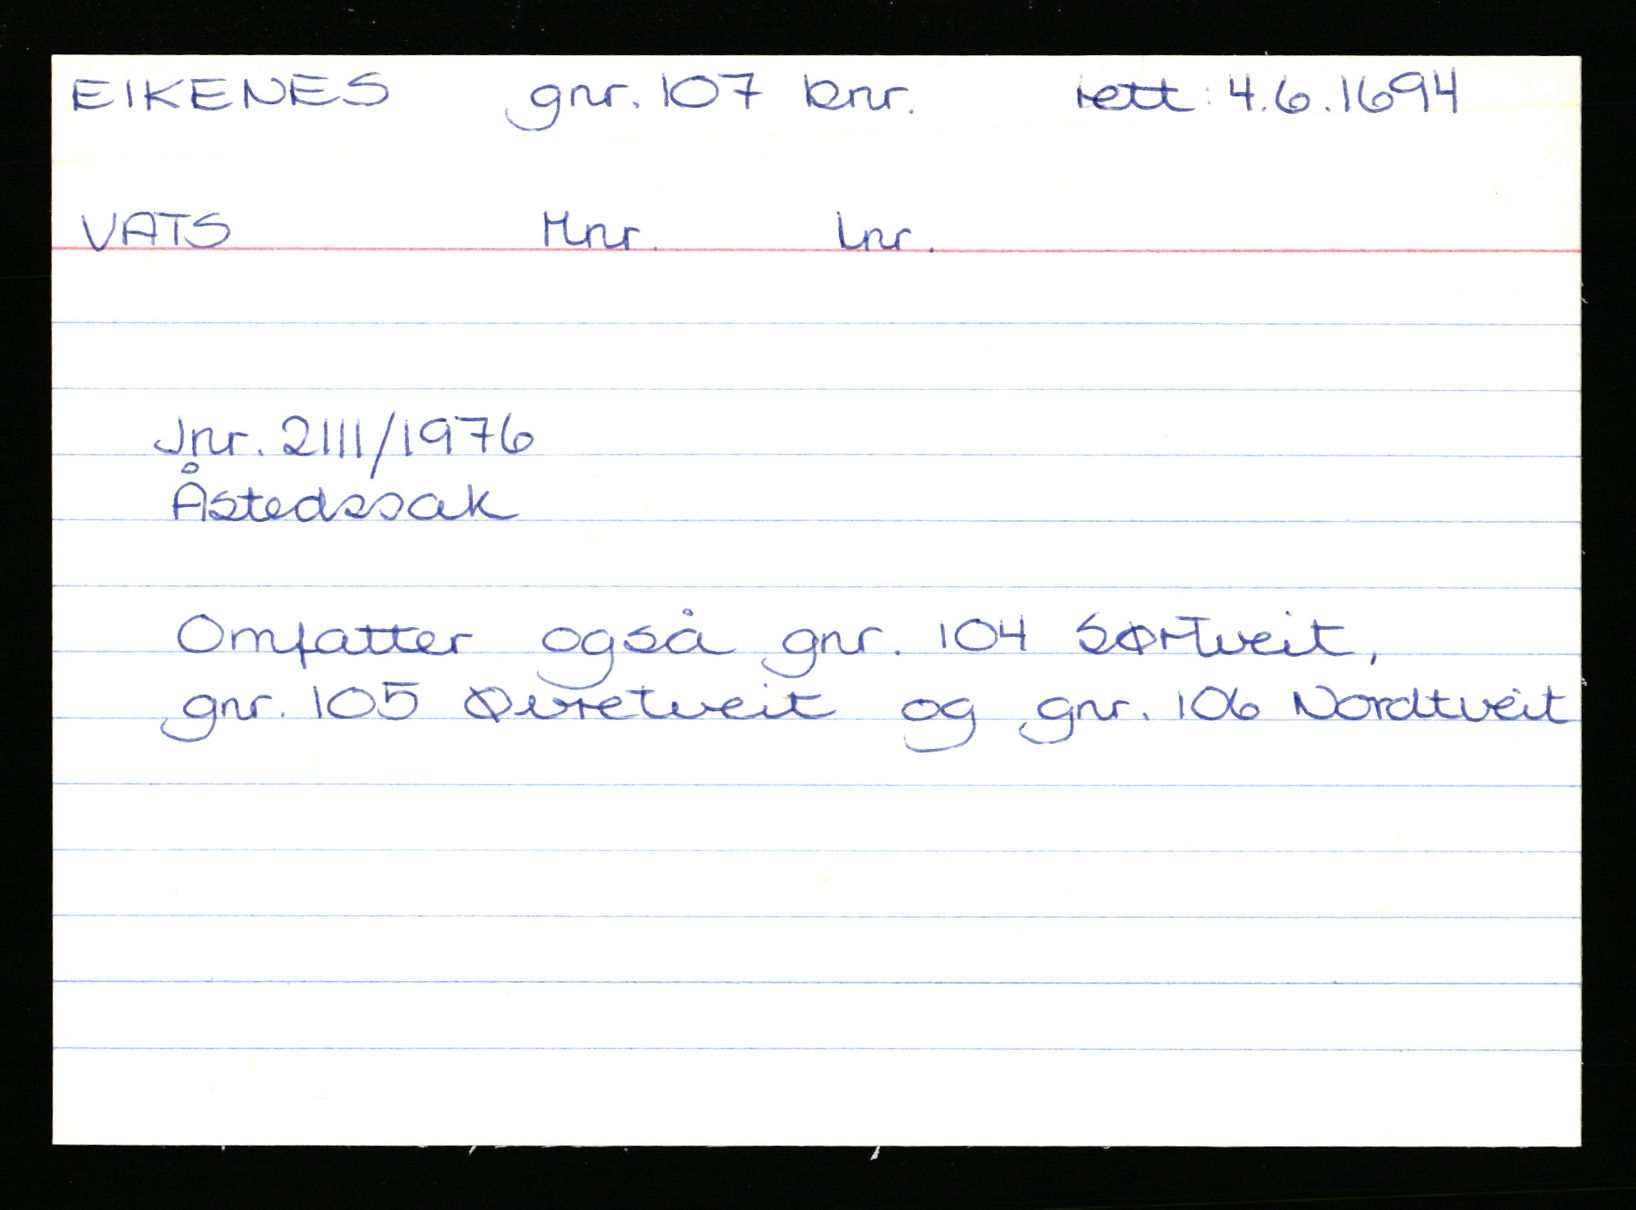 EIKENES gnr. 107 bnr. rett: 4.6.1694
VATS Mnr. Lnr.
Jnr. 2111/1976
Åstedssak
Omfatter også gnr. 104 Sørtveit,
gnr. 105 Øvretveit og gnr. 106 Nordtveit